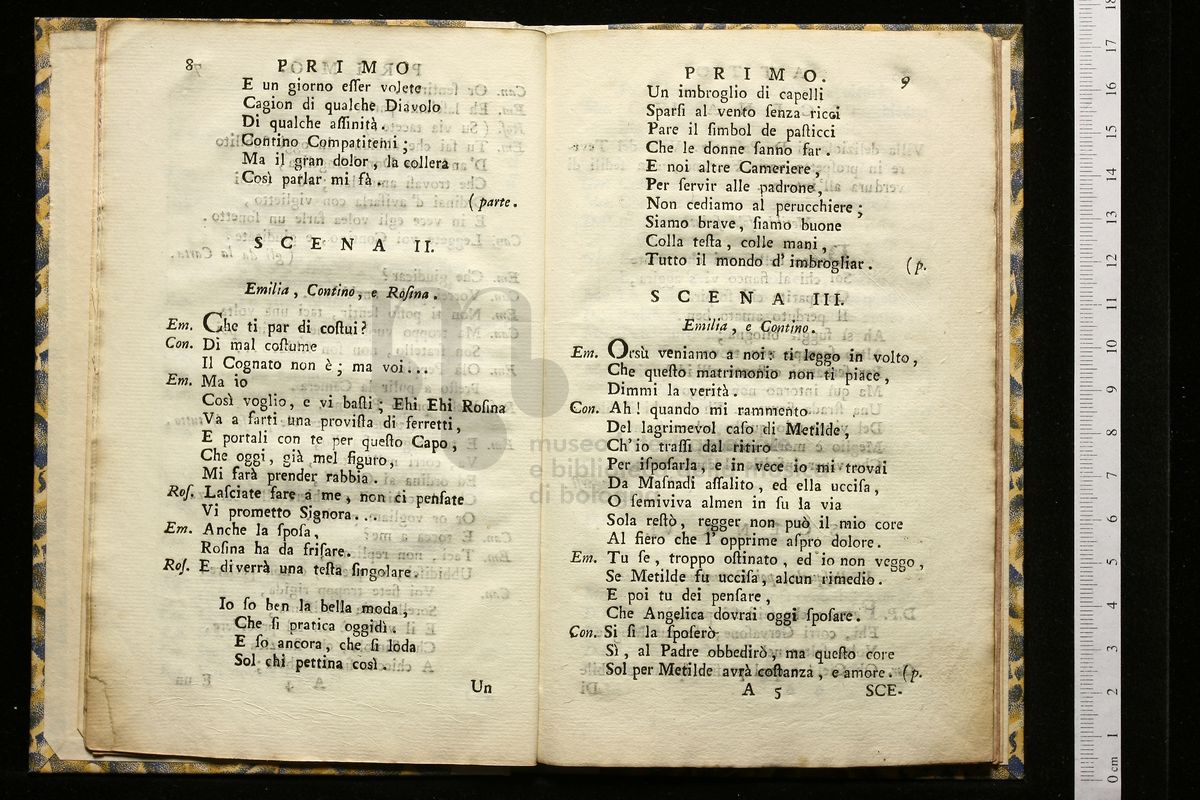 8 PRIMO
E un giorno eſſer volete
Cagion di qualche Diavolo
Di qualche aſſinità.
Contino Compatitemi;
Ma il gran dolor, la collera
Così parlar mi fà.
(parte.
SCENA II.
Emilia, Contino, e Roſina.
Em. Che ti par di coſtui?
Con. Di mal coſtume
Il Cognato non è; ma voi...
Em. Ma io
Così voglio, e vi baſti; Ehi Ehi Roſina
Va a farti una proviſta di ferretti,
E portali con te per queſto Capo;
Che oggi, già mel figuro,
Mi farà prender rabbia.
Roſ. Laſciate fare a me, non ci penſate
Vi prometto Signora...
Em. Anche la ſpoſa,
Roſina ha da friſare.
Roſ. E diverrà una teſta ſingolare.
Io ſo ben la bella moda,
Che ſi pratica oggidì.
E ſo ancora, che ſi loda
Sol chi pettina così.
Un
PRIMO. 9
Un imbroglio di capelli
Sparſi al vento ſenza ricci
Pare il ſimbol de paſticci
Che le donne ſanno far.
E noi altre Cameriere,
Per ſervir alle padrone,
Non cediamo al perucchiere;
Siamo brave, ſiamo buone
Colla teſta, colle mani,
Tutto il mondo d'imbrogliar. (p.
SCENA III.
Emilia, e Contino.
Em. Orsù veniamo a noi: ti leggo in volto,
Che queſto matrimonio non ti piace,
Dimmi la verità.
Con. Ah! quando mi rammento
Del lagrimevol caſo di Metilde,
Ch'io traſſi dal ritiro
Per iſpoſarla, e in vece io mi trovai
Da Maſnadi aſſalito, ed ella ucciſa,
O ſemiviva almen in ſu la via
Sola reſtò, regger non può il mio core
Al fiero che l'opprime aſpro dolore.
Em. Tu ſe, troppo oſtinato, ed io non veggo,
Se Metilde fu ucciſa, alcun rimedio.
E poi tu dei penſare,
Che Angelica dovrai oggi ſpoſare.
Con. Si ſi la ſpoſerò
Sì, al Padre obbedirò, ma queſto core
Sol per Metilde avrà coſtanza, e amore. (p.
A 5 SCE-
museo
e biblioteca
di bologna
0 cm 1 2 3 4 5 6 7 8 9 10 11 12 13 14 15 16 17 18